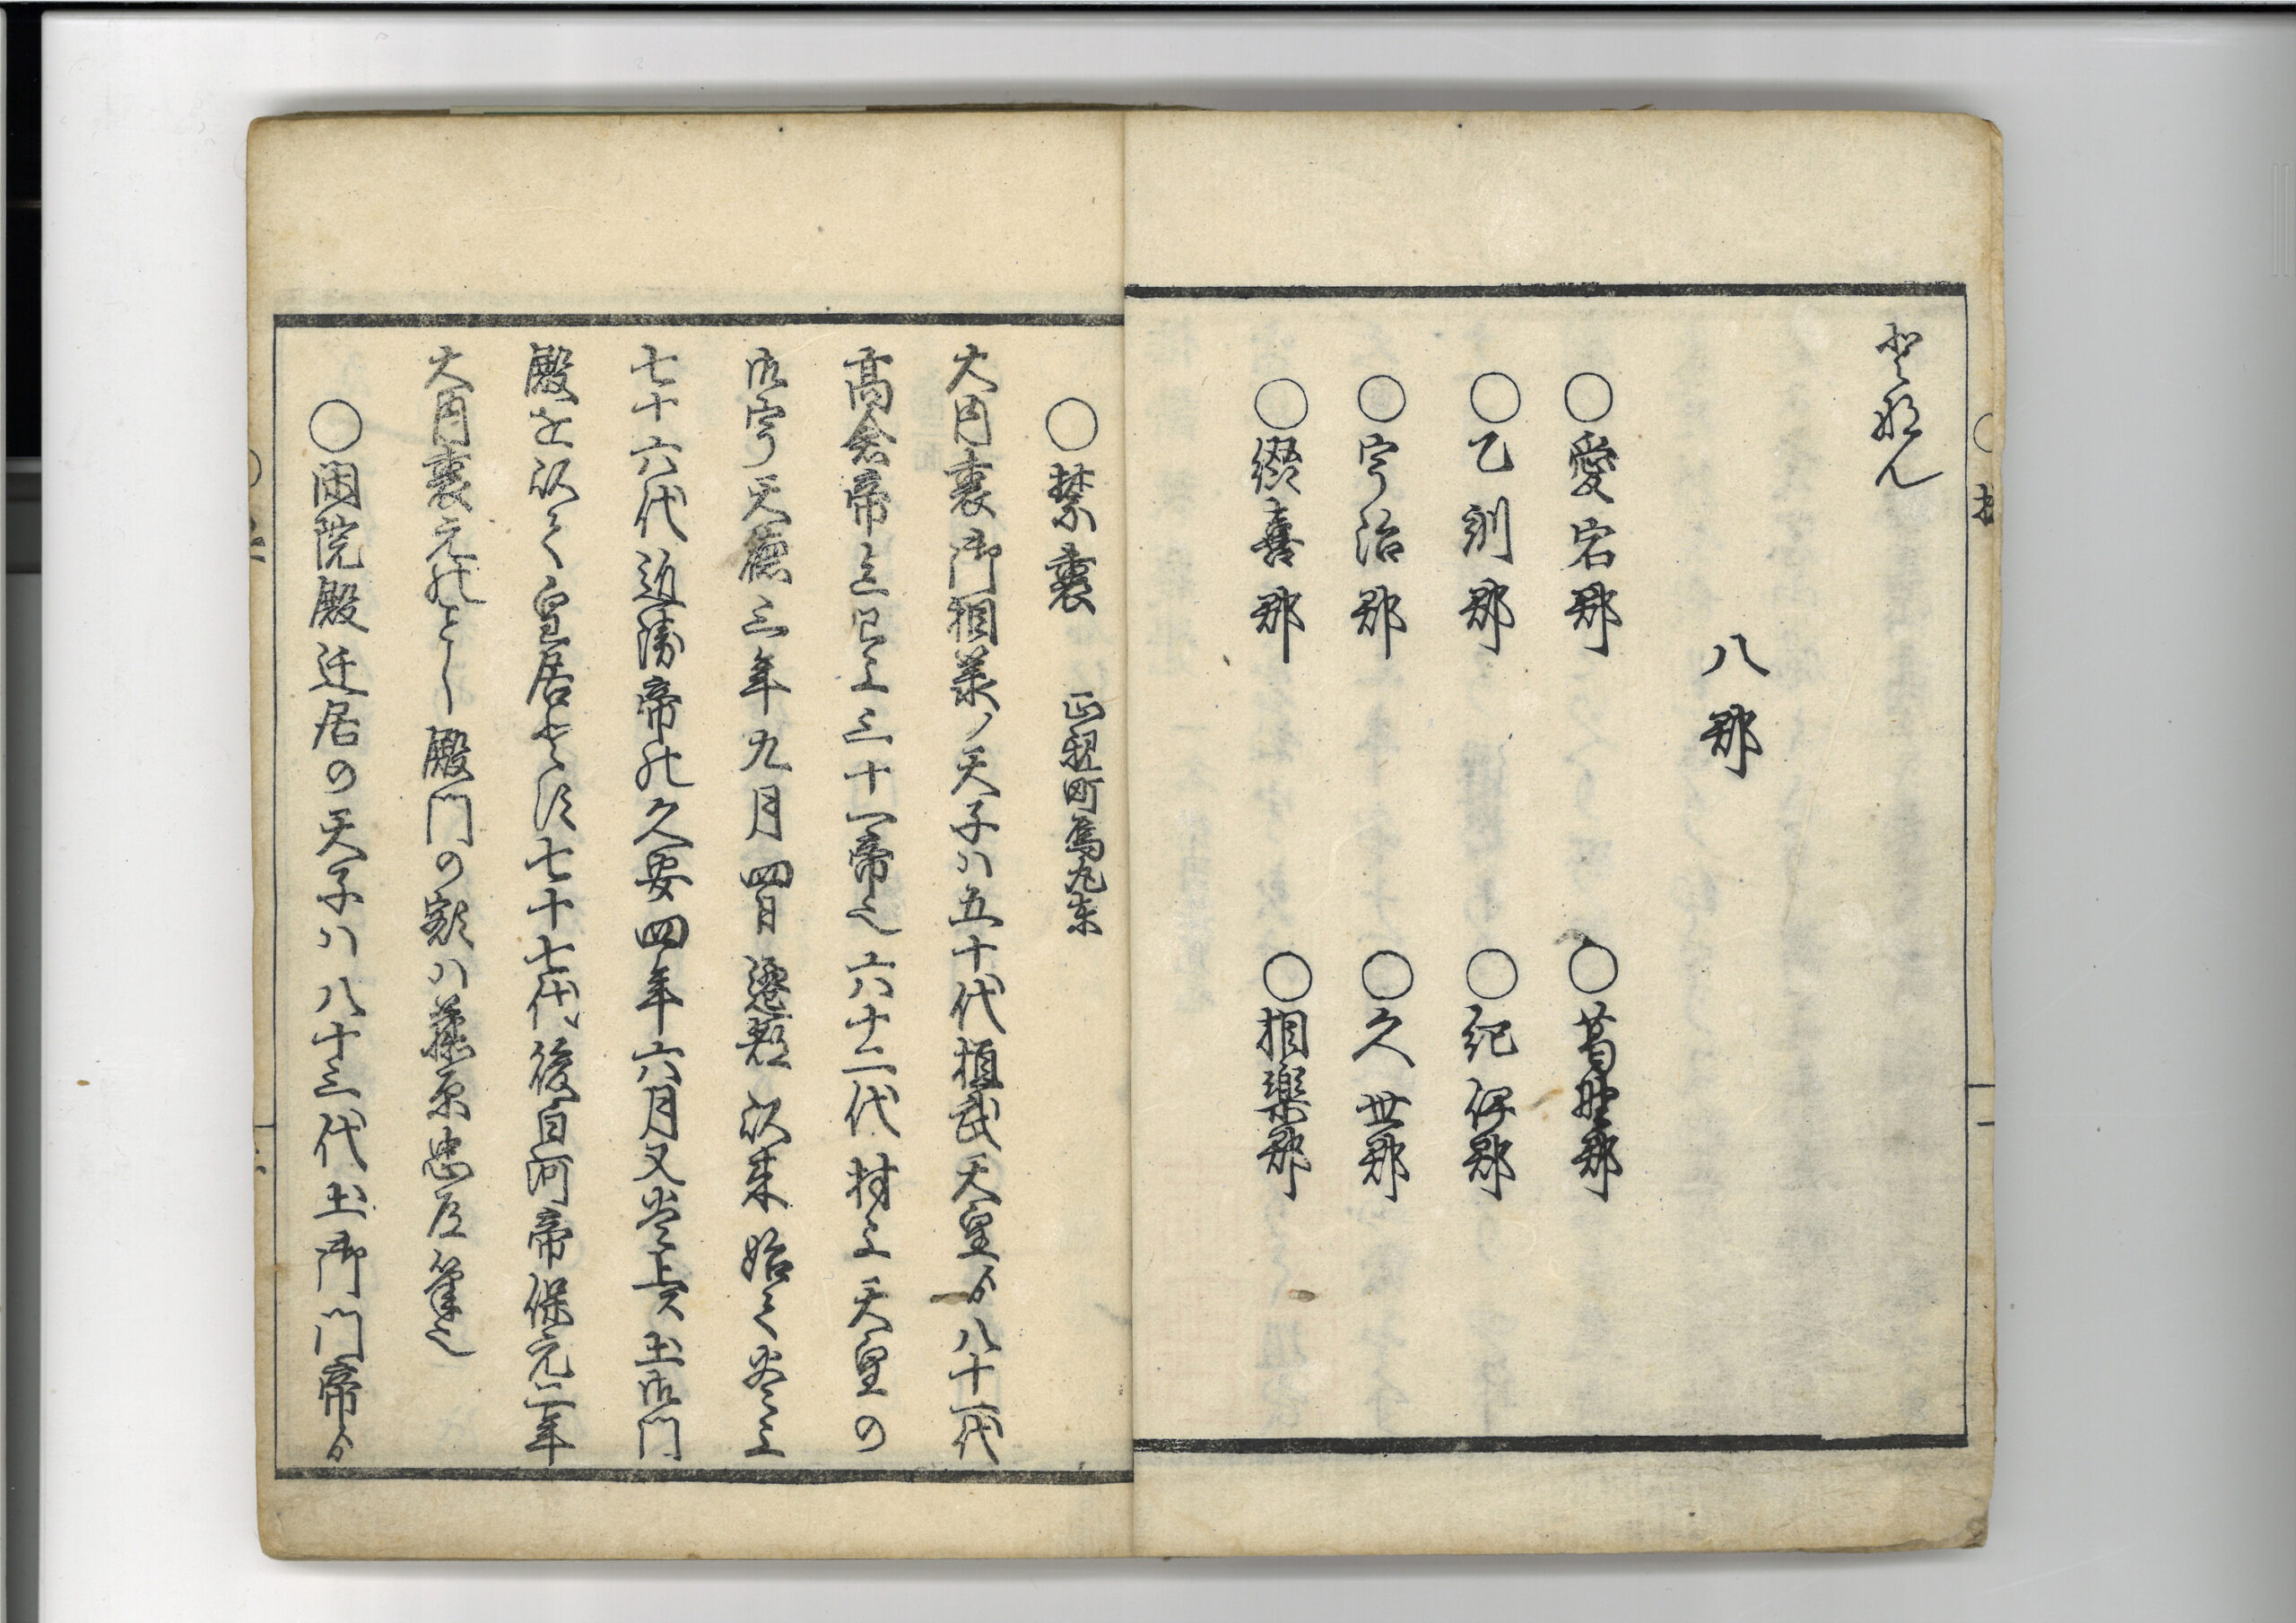 八郡
○愛宕郡
○葛野郡
○乙訓郡
○紀伊郡
○宇治郡
○久世郡
○綴喜郡
○相楽郡
○禁裏 正親町烏丸東
大内裏御門相兼ノ天子ハ五十代桓武天皇ゟ八十一代
高倉帝迄已上三十一帝也六十二代村上天皇の
御宇天徳三年九月四日遷都以来始て炎上
七十六代近衛帝の久安四年六月又炎上土御門
殿を以て皇居とす七十七代後白河帝保元二年
大内裏元のとし殿門の額ハ藤原忠通筆也
○閑院殿迁居の天子ハ八十三代土御門帝ゟ